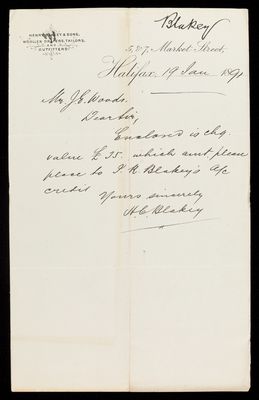 Blakey
HENRY BLAKEY & SONS,
WOOLLEN DRAPERS, TAILORS,
AND
OUTFITTERS.
5, & 7, Market Street,
Halifax, 19 Jan 1891
Mr. J. E. Woods.
Dear Sir,
Enclosed is chq.
value £35. which amt please
place to J. R. Blakey's a/c
credit
Yours sincerely
H C Blakey